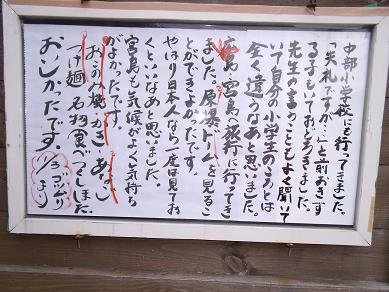 中部小学校にも行ってきました。
「失礼ですが…」と前おきす
る子もいておどろきました。
先生の言うこともよく聞いて
いて自分の小学生のころとは
全く違うなあと思いました。
広島・宮島へ旅行に行ってき
ました。原爆ドームを見るこ
とができてよかったです。
やはり日本人なら一度は見てお
くといいなあと思いました。
宮島も気候がよくて気持ち
がよかったです。
おこのみ焼、かき、あなご、
つけ麺 名物食べつくしました。
おいしかったです。